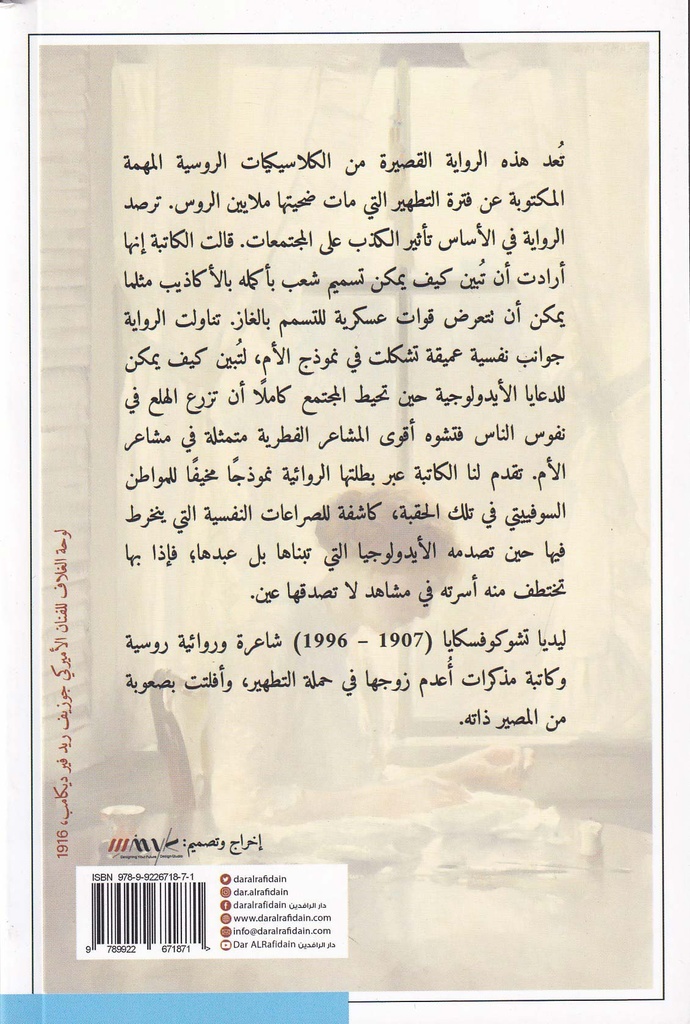 تُعد هذه الرواية القصيرة من الكلاسيكيات الروسية المهمة
المكتوبة عن فترة التطهير التي مات ضحيتها ملايين الروس. ترصد
الرواية في الأساس تأثير الكذب على المجتمعات. قالت الكاتبة إنها
أرادت أن تُبين كيف يمكن تسميم شعب بأكمله بالأكاذيب مثلما
يمكن أن تتعرض قوات عسكرية للتسمم بالغاز. تناولت الرواية
جوانب نفسية عميقة تشكلت في نموذج الأم، لتُبين كيف يمكن
للدعايا الأيدولوجية حين تحيط المجتمع كاملًا أن تزرع الهلع في
نفوس الناس فتشوه أقوى المشاعر الفطرية متمثلة في مشاعر
الأم. تقدم لنا الكاتبة عبر بطلتها الروائية نموذجًا مخيفًا للمواطن
السوفييتي في تلك الحقبة، كاشفة للصراعات النفسية التي ينخرط
فيها حين تصدمه الأيدولوجيا التي تبناها بل عبدها؛ فإذا بها
تختطف منه أسرته في مشاهد لا تصدقها عين.
ليديا تشوكوفسكايا (1907 – 1996) شاعرة وروائية روسية
وكاتبة مذكرات أُعدم زوجها في حملة التطهير، وأفلتت بصعوبة
من المصير ذاته.
لوحة الغلاف للفنان الأميركي جوزيف ريد فير ديكامب، 1916
إخراج وتصميم:
Designing Your Future / Design Studio
ISBN 978-9-9226718-7-1
9 789922 671871 >
daralrafidain
dar.alrafidain
daralrafidain دار الرافدين
www.daralrafidain.com
info@daralrafidain.com
Dar ALRafidain دار الرافدين